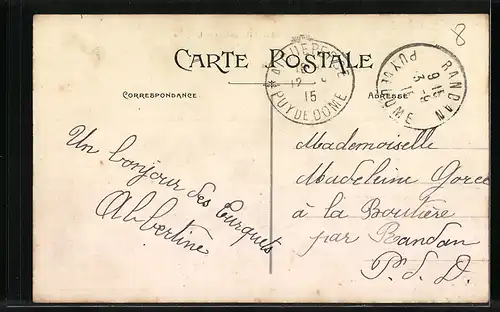 8
CARTE POSTALE
AIGUEPERSE
12
15
PUY DE DOME
RANDAN
9 15
3 - 8
15
PUY DE DOME
CORRESPONDANCE
ADRESSE
Un bonjour des
Albertine
Mademoiselle
Madeleine Gorce
à la Boutière
par Randan
P. d. D.